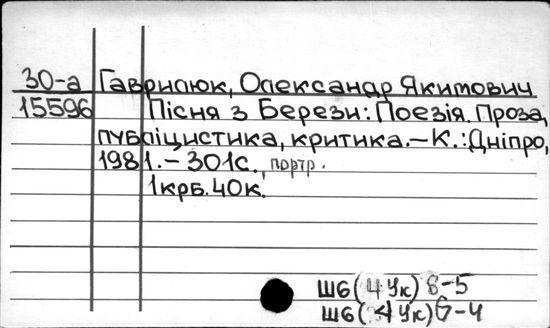 30-а Гаврилюк, Олександр Якимович
15596 Пісня з Берези: Поезія. Проза,
публіцистика, критика.—К.: Дніпро,
1981.— 301с., портр.
1крб. 40к.
Ш6(4Ук) 8-5
Ш6(4Ук)6-4